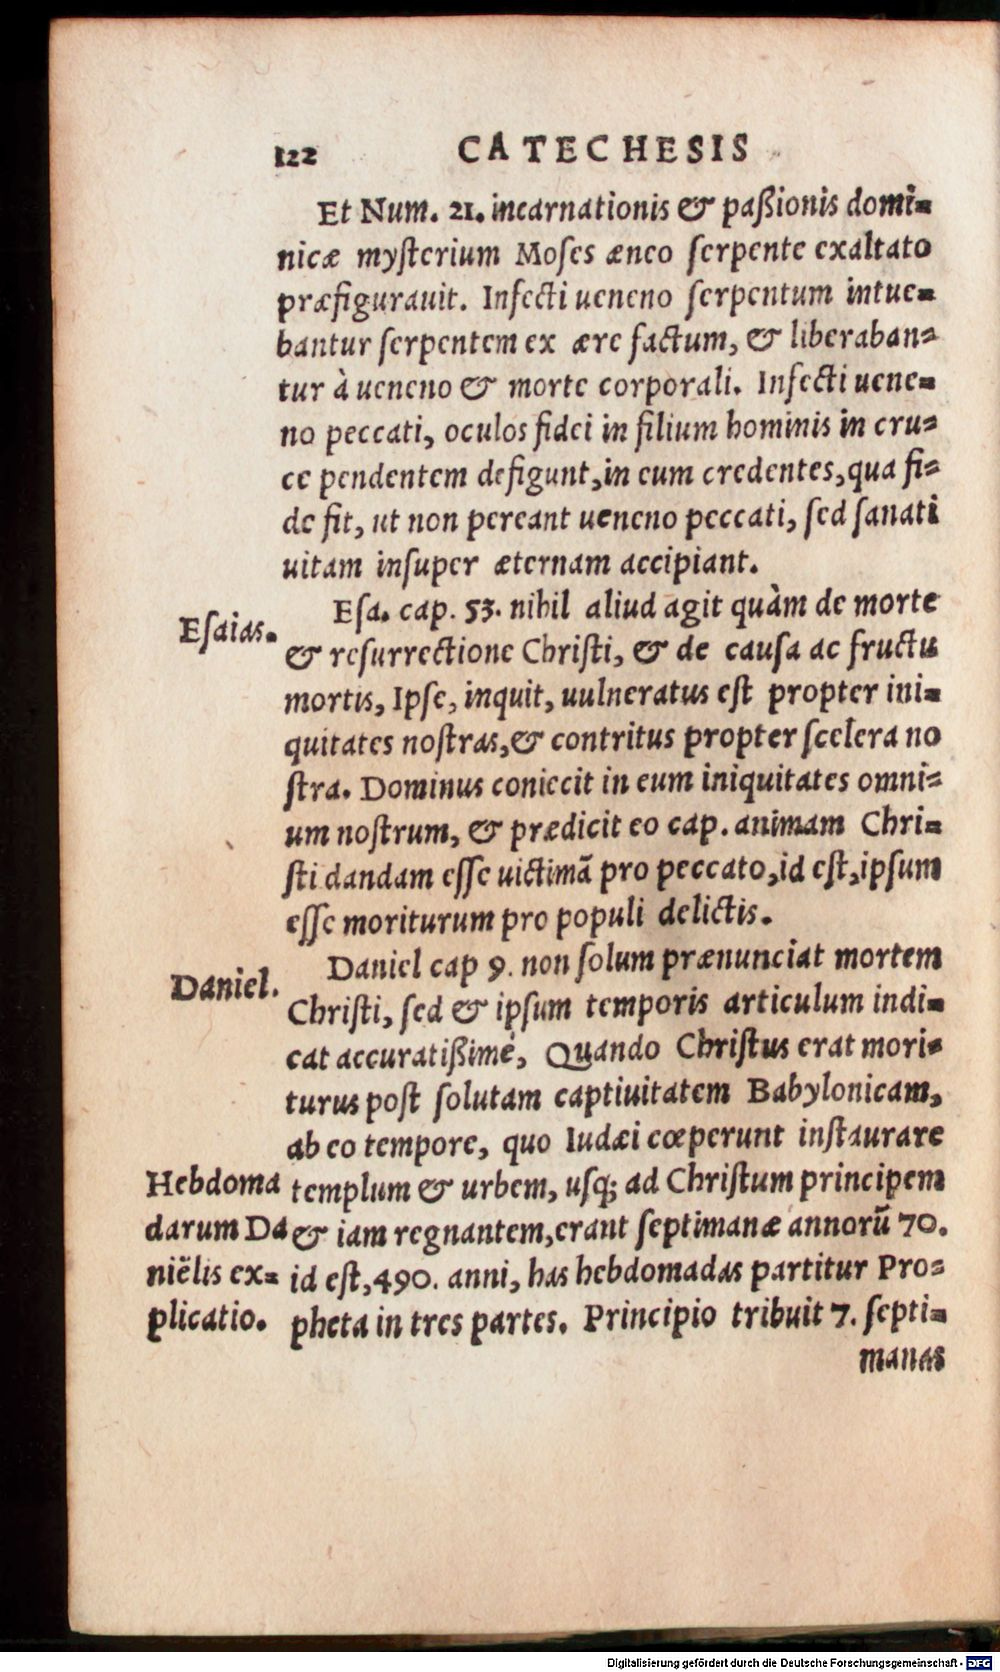 122 CATECHESIS
Et Num. 21. incarnationis & paßionis domi⸗
nicæ myſterium Moſes æneo ſerpente exaltato
præfigurauit. Infecti ueneno ſerpentum intue⸗
bantur ſerpentem ex ære factum, & liberaban⸗
tur à ueneno & morte corporali. Infecti uene⸗
no peccati, oculos fidei in filium hominis in cru⸗
ce pendentem defigunt, in eum credentes, qua fi⸗
de fit, ut non pereant ueneno peccati, ſed ſanati
uitam inſuper æternam accipiant.
Eſaias.
Eſa. cap. 53. nihil aliud agit quàm de morte
& reſurrectione Chriſti, & de cauſa ac fructu
mortis, Ipſe, inquit, uulneratus eſt propter ini⸗
quitates noſtras, & contritus propter ſcelera no
ſtra. Dominus coniecit in eum iniquitates omni⸗
um noſtrum, & prædicit eo cap. animam Chri⸗
ſti dandam eſſe uictimã pro peccato, id eſt, ipſum
eſſe moriturum pro populi delictis.
Daniel.
Daniel cap 9. non ſolum prænunciat mortem
Chriſti, ſed & ipſum temporis articulum indi⸗
cat accuratißimè, Quando Chriſtus erat mori⸗
turus poſt ſolutam captiuitatem Babylonicam,
ab eo tempore, quo Iudæi cœperunt inſtaurare
templum & urbem, uſq; ad Chriſtum principem
& iam regnantem, erant ſeptimanæ annorũ 70.
id eſt, 490. anni, has hebdomadas partitur Pro⸗
pheta in tres partes. Principio tribuit 7. ſepti⸗
Hebdoma
darum Da
niëlis ex⸗
plicatio.
manas
Digitalisierung gefördert durch die Deutsche Forschungsgemeinschaft - DFG